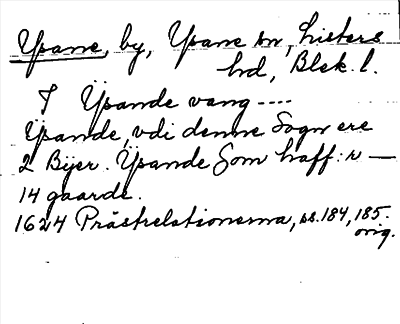 Ysane, by, Ysane sn, Listers
hd, Blek. l.
J Ÿsande vang ----
Ÿsande, vdi denne Sogn ere
2 Bÿer. Ÿsande Som haff: r —
14 gaarde.
1624 Prästrelationerna, ss. 184, 185.
orig.